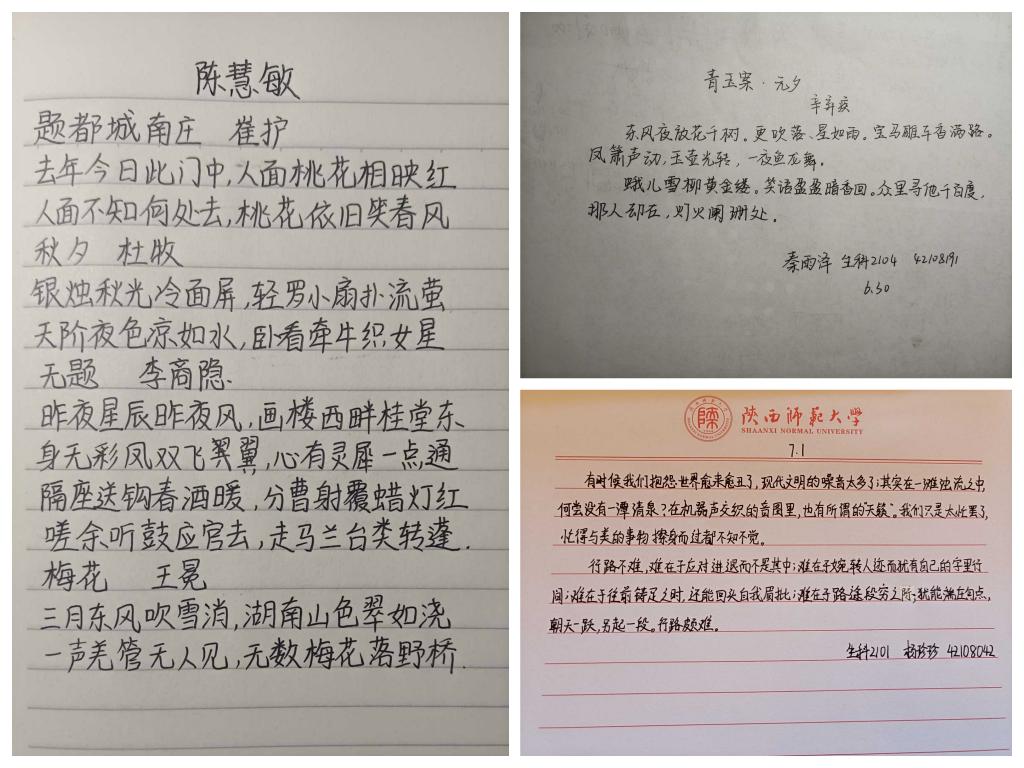 陈慧敏
题都城南庄 崔护
去年今日此门中,人面桃花相映红
人面不知何处去,桃花依旧笑春风
秋夕 杜牧
银烛秋光冷画屏,轻罗小扇扑流萤
天阶夜色凉如水,卧看牵牛织女星
无题 李商隐.
昨夜星辰昨夜风,画楼西畔桂堂东
身无彩凤双飞翼翼,心有灵犀一点通
隔座送钩春酒暖,分曹射覆蜡灯红
嗟余听鼓应官去,走马兰台类转蓬.
梅花 王冕
三月东风吹雪消,湖南山色翠如浇
一声羌管无人见,无数梅花落野桥.
青玉案·元夕
辛弃疾
东风夜放花千树。更吹落、星如雨。宝马雕车香满路。
凤箫声动,玉壶光转,一夜鱼龙舞。
蛾儿雪柳黄金缕。笑语盈盈暗香回。众里寻他千百度,
那人却在,灯火阑珊处。
秦雨泽 生科2104 42108191
6.30
陕西师范大学
SHAANXI NORMAL UNIVERSITY
7.1
有时候我们抱怨世界愈来愈丑了,现代文明的噪音太多了;其实在一滩浊流之中,
何尝没有一潭清泉?在机器声交织的音图里,也有所谓的“天籁”。我们只是太忙罢了,
忙得与美的事物擦身而过都不知不觉。
行路不难,难在于应对进退而不是其中;难在于婉转人迹而犹有自己的字里行
间;难在于往前铸足之时,还能回头自我眉批;难在于路途段穷之所,犹能端在句点,
朝天一跃,另起一段。行路颇难。
生科2101 杨珍珍 42108042